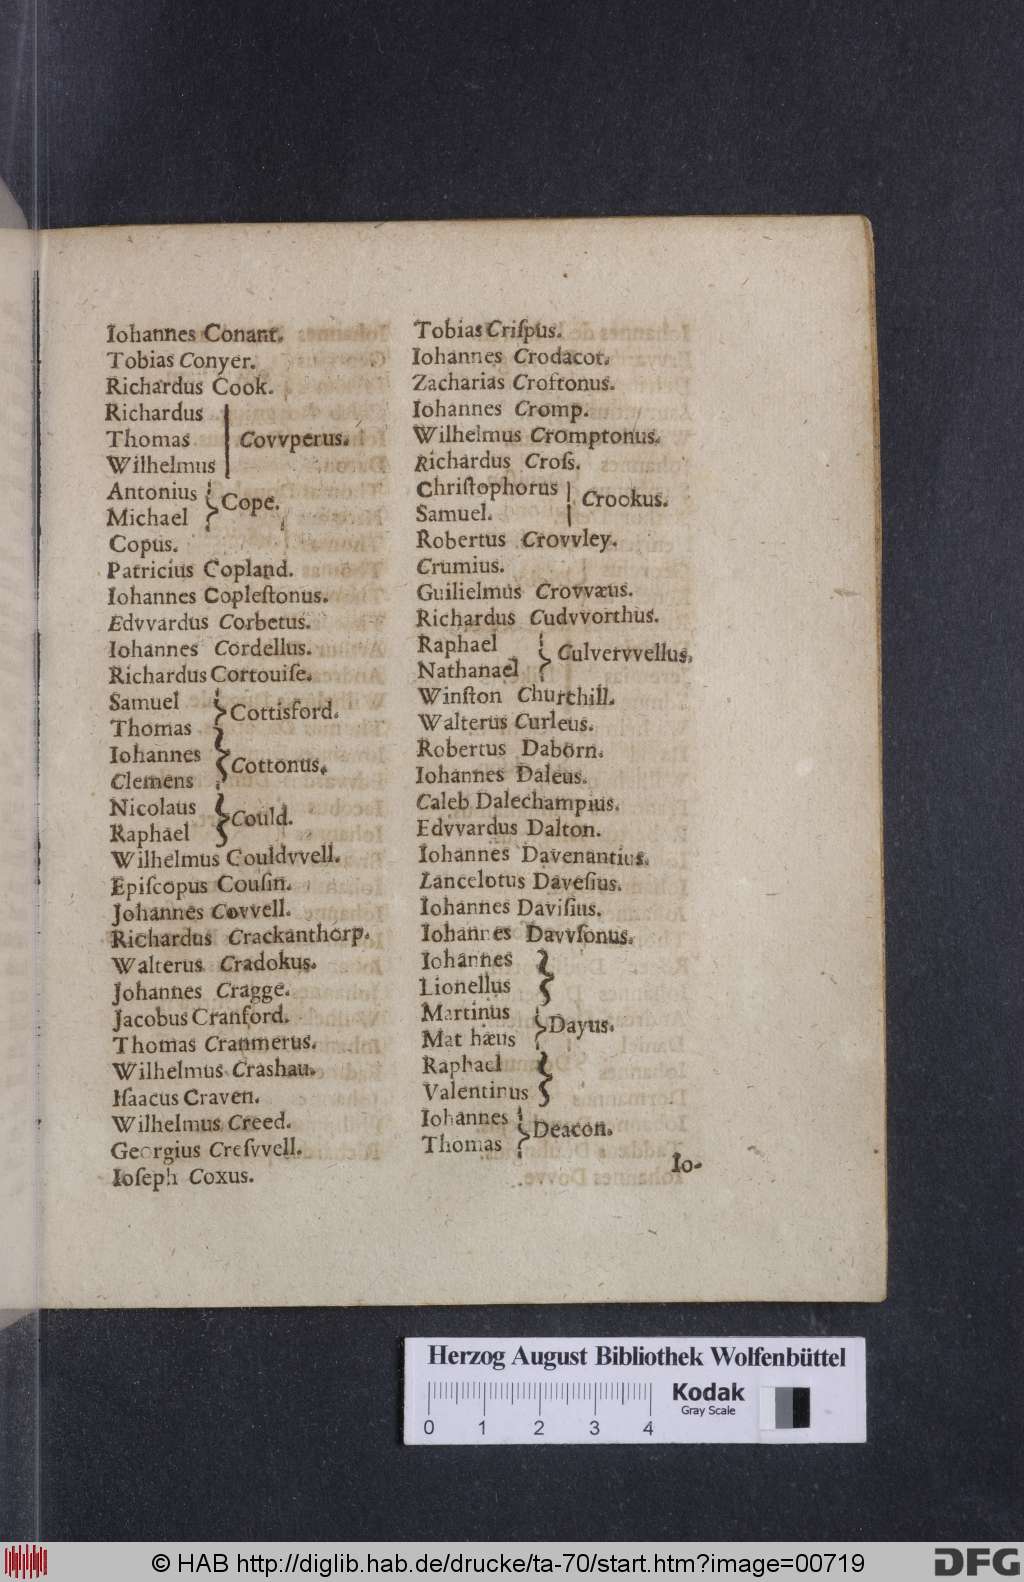 Iohannes Conant.
Tobias Conyer.
Richardus Cook.
Richardus
Thomas Covvperus.
Wilhelmus
Antonius
Cope.
Michael
Copus.
Patricius Copland.
Iohannes Copleſtonus.
Edvvardus Corbetus.
Iohannes Cordellus.
Richardus Cortouiſe.
Samuel
Cottisford.
Thomas
Iohannes
Cottonus.
Clemens
Nicolaus
Could.
Raphael
Wilhelmus Couldvvell.
Epiſcopus Couſin.
Johannes Covvell.
Richardus Crackanthorp.
Walterus Cradokus.
Johannes Cragge.
Jacobus Cranford.
Thomas Cranmerus.
Wilhelmus Crashau.
Iſaacus Craven.
Wilhelmus Creed.
Georgius Creſvvell.
Ioſeph Coxus.
Tobias Criſpus.
Iohannes Crodacot.
Zacharias Croftonus.
Iohannes Cromp.
Wilhelmus Cromptonus.
Richardus Croſs.
Chriſtophorus
Crookus.
Samuel.
Robertus Crovvley.
Crumius.
Guilielmus Crovvæus.
Richardus Cudvvorthus.
Raphael
Culvervvellus.
Nathanael
Winſton Churchill.
Walterus Curleus.
Robertus Daborn.
Iohannes Daleus.
Caleb Dalechampius.
Edvvardus Dalton.
Iohannes Davenantius.
Lancelotus Daveſius.
Iohannes Daviſius.
Iohannes Davvſonus.
Iohannes
Lionellus
Martinus
Dayus.
Mat hæus
Raphael
Valentinus
Iohannes
Deacon.
Thomas
Io-
Herzog August Bibliothek Wolfenbüttel
Kodak
Gray Scale
0 1 2 3 4
© HAB http://diglib.hab.de/drucke/ta-70/start.htm?image=00719
DFG